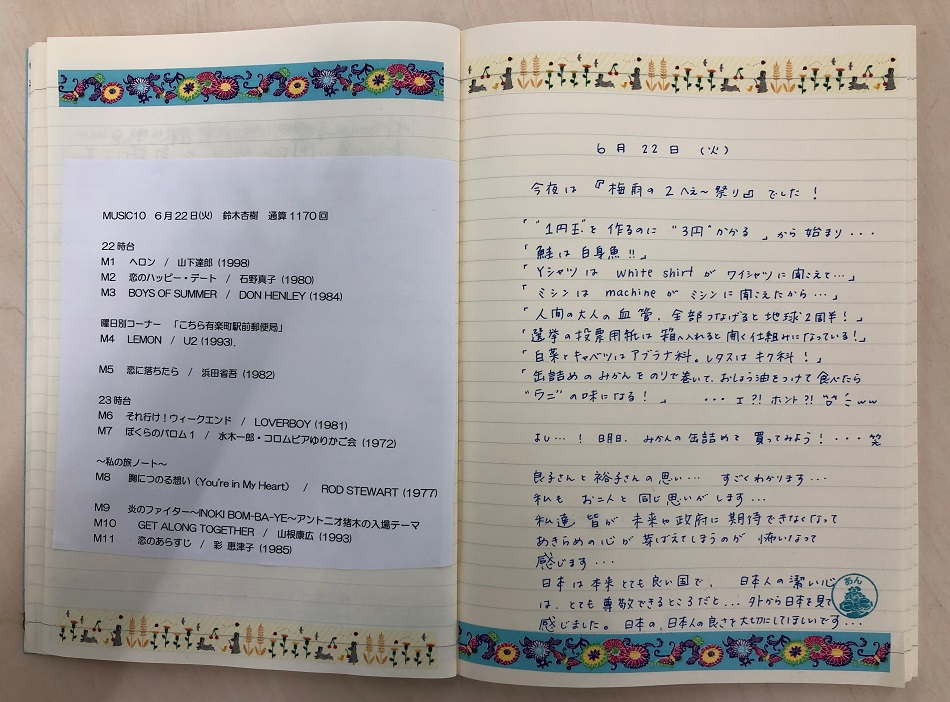 MUSIC10 6月22日(火) 鈴木杏樹 通算1170回
22時台
M1 ヘロン / 山下達郎 (1998)
M2 恋のハッピー・デート / 石野真子 (1980)
M3 BOYS OF SUMMER / DON HENLEY (1984)
曜日別コーナー 「こちら有楽町駅前郵便局」
M4 LEMON / U2 (1993).
M5 恋に落ちたら / 浜田省吾 (1982)
23時台
M6 それ行け!ウィークエンド / LOVERBOY (1981)
M7 ぼくらのバロム1 / 水木一郎・コロムビアゆりかご会 (1972)
～私の旅ノート～
M8 胸につのる想い (You're in My Heart) / ROD STEWART (1977)
M9 炎のファイター～INOKI BOM-BA-YE～アントニオ猪木の入場テーマ
M10 GET ALONG TOGETHER / 山根康広 (1993)
M11 恋のあらすじ / 彩 恵津子 (1985)
6月22日 (火)
今夜は『梅雨の2へぇ～祭り』でした!
「"1円玉"を作るのに"3円"かかる」から始まり・・・
「鮭は白身魚!!」
「Yシャツは white shirt が ワイシャツに聞こえて…」
「ミシンは machine が ミシンに聞こえたから…」
「人間の大人の血管、全部つなげると地球2周半!」
「選挙の投票用紙は箱へ入れると開く仕組みになっている!」
「白菜とキャベツはアブラナ科。レタスはキク科!」
「缶詰めのみかんをのりで巻いて、おしょう油をつけて食べたら
"ウニ"の味になる!」 ・・・エ?! ホント?! ww
よし…! 明日、みかんの缶詰めて 買ってみよう!・・・笑
良子さんと裕子さんの思い… すごくわかります…
私も お二人と同じ思いがします…
私達 皆が 未来や政府に期待できなくなって
あきらめの心が芽ばえてしまうのが 怖いなって
感じます・・・
日本は本来とても良い国で、 日本人の潔い心
は、とても尊敬できるところだと… 外から日本を見て
感じました。日本の、日本人の良さを大切にしてほしいです…
あん